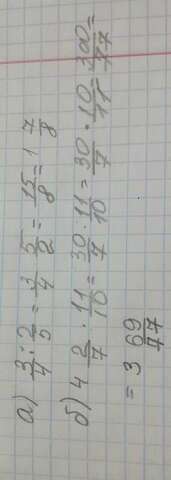 а) 3/4 : 2/5 = 3/4 · 5/2 = 15/8 = 1 7/8
б) 4 2/7 · 11/10 = 30/7 · 11/10 = 30/7 · 10/11 = 300/77 =
= 3 69/77